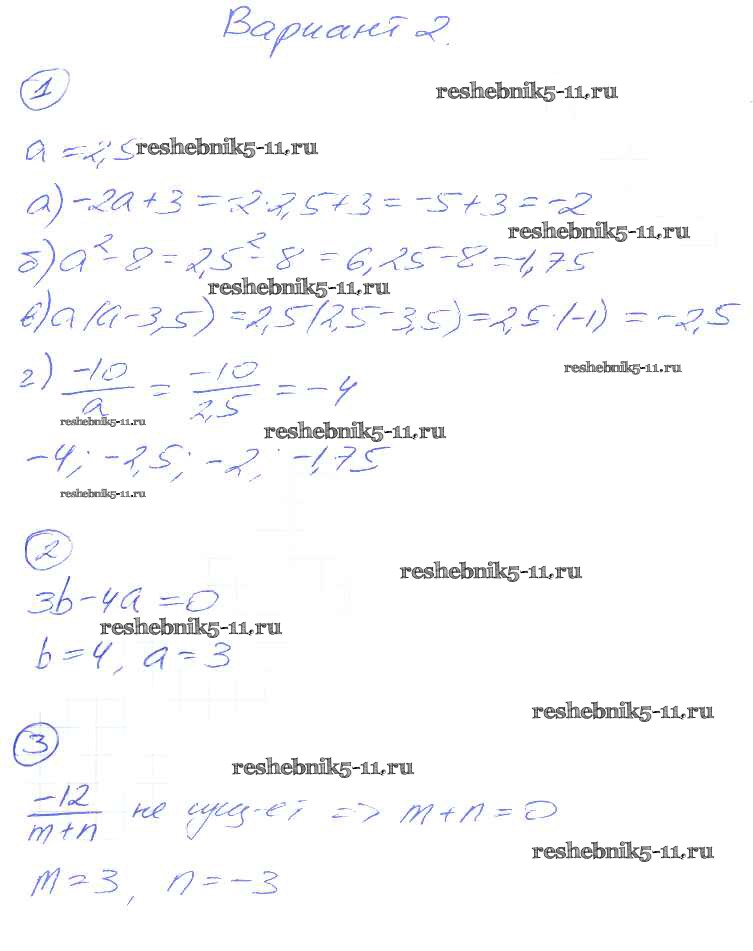 Вариант 2.
1
reshebnik5-11.ru
a = 2,5 reshebnik5-11.ru
а) -2a + 3 = -2·2,5 + 3 = -5 + 3 = -2
reshebnik5-11.ru
б) a² - 8 = 2,5² - 8 = 6,25 - 8 = -1,75
reshebnik5-11.ru
в) a(a - 3,5) = 2,5(2,5 - 3,5) = 2,5·(-1) = -2,5
г) -10/a = -10/2,5 = -4
reshebnik5-11.ru
reshebnik5-11.ru
reshebnik5-11.ru
-4; -2,5; -2; -1,75
reshebnik5-11.ru
2
reshebnik5-11.ru
3b - 4a = 0
reshebnik5-11.ru
b = 4, a = 3
reshebnik5-11.ru
3
reshebnik5-11.ru
-12/m+n не сущ-ет => m + n = 0
reshebnik5-11.ru
m = 3, n = -3